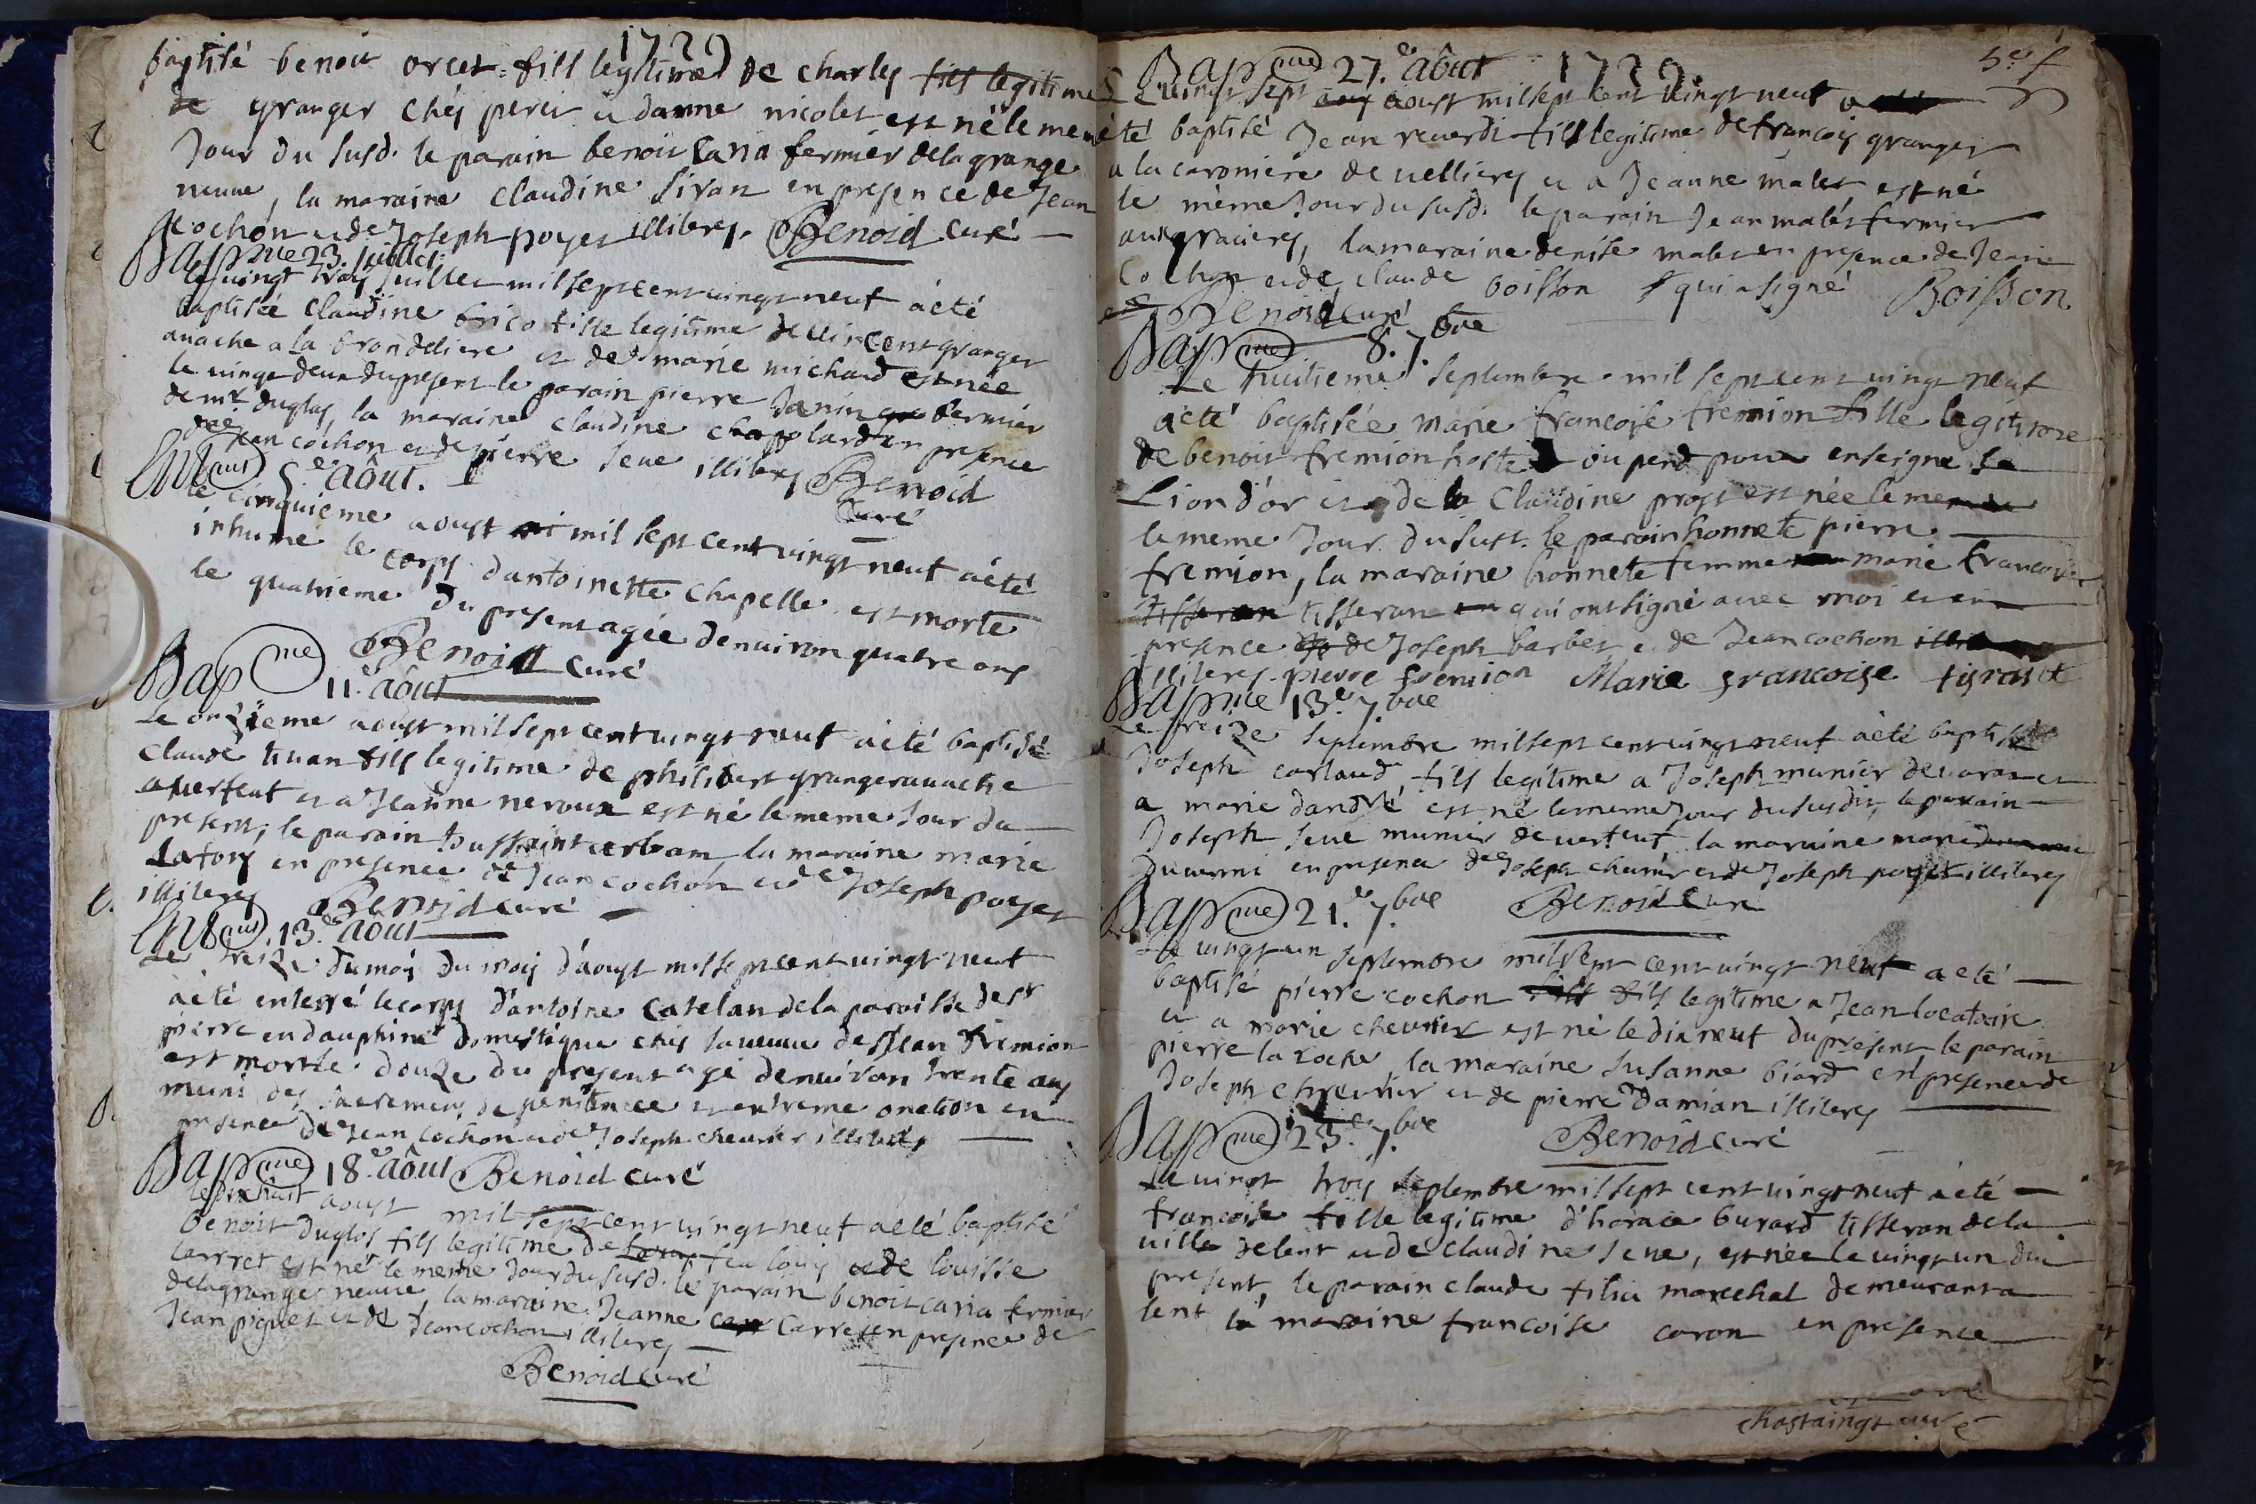 1729
baptisé benoit orcet fils legitime de charles fils legitime
de granger chés peret et danne nicolet est né le meme
Jour du susd. le parain benoit caria fermier dela grange
neuue, la maraine claudine sivan en presence de Jean
cochon et de Joseph poyet illiteres. Benoid curé
Bapme 23. Juillet
le vingt trois Juillet mil sept cent vingt neuf a été
baptisée claudine brico fille legitime de vincent granger
auache a la brondeliere et de marie michard est née
le vingt deux du present le parain pierre Janin fermier
de mr duglas la maraine claudine chapolard en presence
de Jean cochon et de pierre seue illiteres Benoid
curé
5e août.
le cinquieme aoust mil sept cent vingt neuf a été
inhumé le corps dantoinette chapelle est morte
le quatrieme du present agée denuiron quatre ans
Benoid curé
Bapme 11e août
Le onzieme aoust mil sept cent vingt neuf a été baptisé
claude tivan fils legitime de philibert granger auache
a verfeut et a Jeanne neroux est né le meme Jour du
present, le parain tussaint verbam la maraine marie
Lafory en presence de Jean cochon et de Joseph poyet
illiteres Benoid curé
13e août
Le treize du mois du mois d'aoust mil sept cent vingt neuf
a été enterré le corps d'antoine catelan dela paroisse de st
pierre en dauphiné domestique chés la veuue de Jean fremion
est mort le douze du present agé denuiron trente ans
muni des sacremens de penitence et extreme onction en
presence de Jean cochon et de Joseph cheurier illiteres
Bapme 18e août Benoid curé
le dixhuit aoust mil sept cent vingt neuf a été baptisé
benoit duglos fils legitime de feu louis et de louisse
carret est né le meme Jour du susd. le parain benoit caria fermier
dela grange neuue, la maraine Jeanne carret en presence de
Jean piquet et de Jean cochon illiteres
Benoid curé
Bapme 27e août 1729.
Le vingt sept aoust mil sept cent vingt neuf a
été baptisé Jean reuerdi fils legitime de francois granger
a la caroniere de uellieres et a Jeanne malet est né
le même Jour du susd. le parain Jean malet fermier
aux gracieres, la maraine denise malet en presence de Jean
cochon et de claude boisson qui a signé Boisson
Benoid curé
Bapme 8.7.bre
Le huitieme septembre mil sept cent vingt neuf
a été baptisée marie francoise fremion fille legitime
de benoit fremion hoste ou pend pour enseigne Le
Lion d'or et de la Claudine prost est née le
le meme Jour du sust. le parain honnete pierre
fremion, la maraine honnete femme marie francoise
tisseran tisseran qui ont signé auec moi et en
presence de Joseph barbet et de Jean cochon
illiteres pierre fremion Marie francoise tisrant
Bapme 13e 7.bre
Le treize septembre mil sept cent vingt neuf a été baptisé
Joseph carlaud fils legitime a Joseph munier de varax et
a marie dandré est né le meme Jour du susdit, le parain
Joseph seue munier de verfeut la maraine marie
ducerni en presence de Joseph cheurier et de Joseph poyet illiteres
Bapme 21.e 7.bre Benoid cure
Le vingt un septembre mil sept cent vingt neuf a été
baptisé pierre cochon fils legitime a Jean locataire
et a marie cheurier est né le dixneuf du present, le parain
pierre la roche, la maraine susanne biard en presence de
Joseph cheurier et de pierre damian illiteres
Bapme 23.e 7.bre Benoid curé
Le vingt trois septembre mil sept cent vingt neuf a été
francoise fille legitime d'horace burard tisseran dela
ville de lent et de claudine seue, est née le vingt un du
present, le parain claude filia marechal demeurant a
lent la maraine francoise caron en presence
chastaingt curé